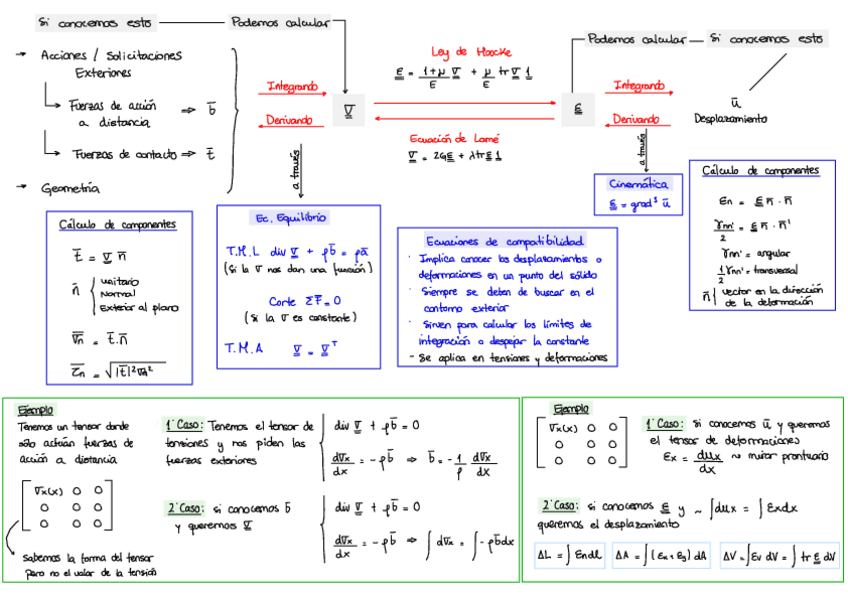 Si conocemos esto
Podemos calcular
→ Acciones / Solicitaciones
Exteriores
Fuerzas de acción
a distancia ⇒ b̄
Fuerzas de contacto ⇒ t̄
→ Geometría
Integrando
Derivando
a través
Ley de Hoocke
ε = 1+μ/E σ + μ/E tr σ 1
Ecuación de Lamé
σ = 2Gε + λtr ε 1
Podemos calcular
Si conocemos esto
Integrando
Derivando
a través
ū
Desplazamiento
Cinemática
ε = gradˢ ū
Cálculo de componentes
t̄ = σ n̄
n̄ { unitario
Normal
Exterior al plano
σ̄n = t̄ · n̄
τ̄n = √|t̄|² σn²
Ec. Equilibrio
T.M.L div σ + ρb̄ = ρā
(Si la σ nos dan una función)
Corte ΣF̄ = 0
(Si la σ es constante)
T.M.A σ = σᵀ
Ecuaciones de compatibilidad
· Implica conocer los desplazamientos o
deformaciones en un punto del sólido
· Siempre se deben de buscar en el
contorno exterior
· Sirven para calcular los límites de
integración o despejar la constante
- Se aplica en tensiones y deformaciones
Cálculo de componentes
εn = ε n̄ · n̄
γnn'/2 = ε n̄ · n̄'
γnn' = angular
1/2 γnn' = transversal
n̄ | vector en la dirección
de la deformación
Ejemplo
Tenemos un tensor donde
sólo actúan fuerzas de
acción a distancia
[ σx(x) 0 0
0 0 0
0 0 0 ]
Sabemos la forma del tensor
pero no el valor de la tensión
1º Caso: Tenemos el tensor de
tensiones y nos piden las
fuerzas exteriores
div σ + ρb̄ = 0
dσx/dx = -ρb̄ ⇒ b̄ = -1/ρ dσx/dx
2º Caso: si conocemos b̄
y queremos σ
div σ + ρb̄ = 0
dσx/dx = -ρb̄ ⇒ ∫dσx = ∫-ρb̄dx
Ejemplo
[ σx(x) 0 0
0 0 0
0 0 0 ]
1º Caso: si conocemos ū y queremos
el tensor de deformaciones
εx = dux/dx ~ mirar prontuario
2º Caso: si conocemos ε y ~ ∫dux = ∫εxdx
queremos el desplazamiento
ΔL = ∫εn dl
ΔA = ∫(εx + εy) dA
ΔV = ∫εv dV = ∫ tr ε dV